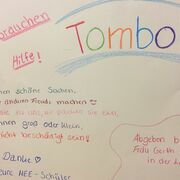 brauchen
Hilfe!
Tombo
schöne Sachen,
anderen Freude machen
zu uns, wir packen sie ein,
groß oder klein,
nicht beschädigt sein!
Danke
Eure MEE-Schüler
Abgeben b
Frau Gerth
in der